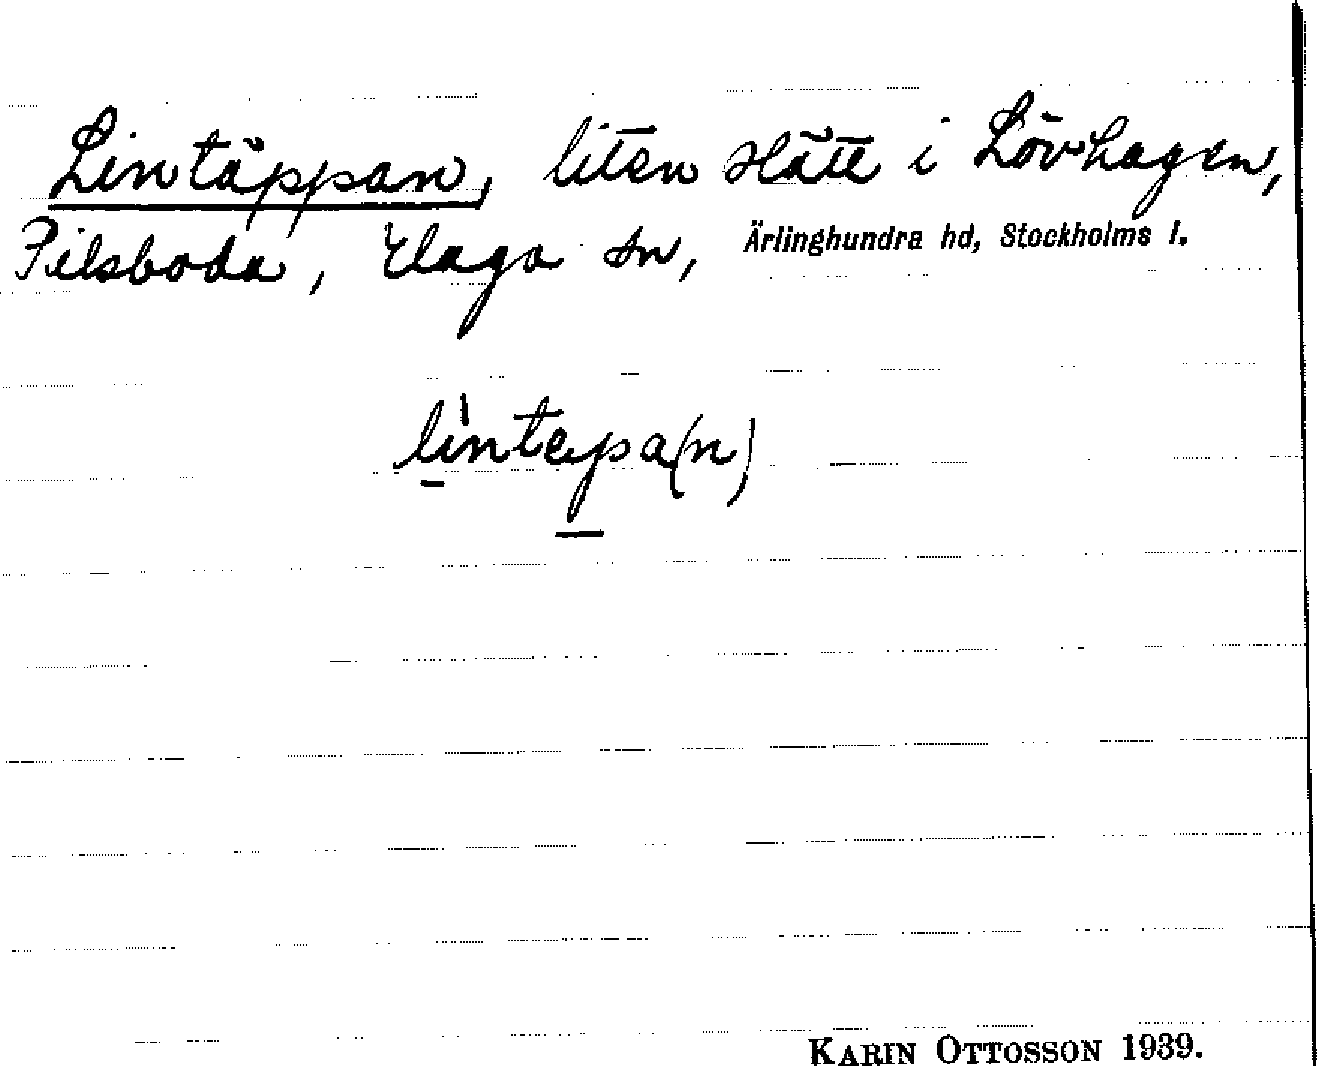 Lintäppan, liten slätt i Lövhagen,
Pilsboda, Haga sn, Ärlinghundra hd, Stockholms l.
lìntepa(n)
KARIN OTTOSSON 1939.